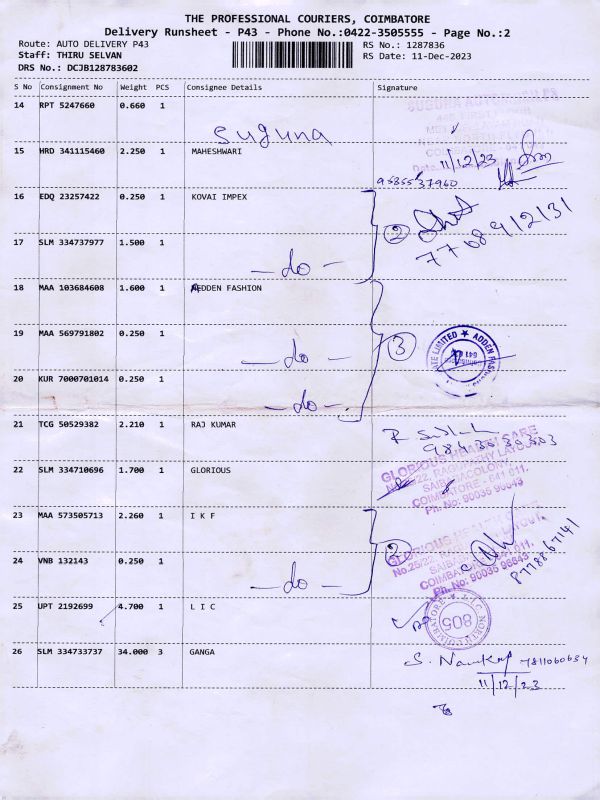 THE PROFESSIONAL COURIERS, COIMBATORE
Delivery Runsheet - P43 - Phone No.:0422-3505555 - Page No.:2
Route: AUTO DELIVERY P43
Staff: THIRU SELVAN
DRS No.: DCJB128783602
RS No.: 1287836
RS Date: 11-Dec-2023
S No Consignment No Weight PCS Consignee Details Signature
14 RPT 5247660 0.660 1
Suguna
15 HRD 341115460 2.250 1 MAHESHWARI
Date 11/12/23
9585537940
16 EDQ 23257422 0.250 1 KOVAI IMPEX
2
7708912131
17 SLM 334737977 1.500 1
- do -
18 MAA 103684608 1.600 1 AEDDEN FASHION
19 MAA 569791802 0.250 1
- do -
3
ATE LIMITED ★ ADDEN FASH
20 KUR 7000701014 0.250 1
- do -
21 TCG 50529382 2.210 1 RAJ KUMAR
22 SLM 334710696 1.700 1 GLORIOUS
GLORIOUS HEALTH CARE
No.25/22, RAGUPATHY LAYOUT,
SAIBABA COLONY,
COIMBATORE - 641 011.
Ph. No: 90035 98643
23 MAA 573505713 2.260 1 I K F
2
8778867141
24 VNB 132143 0.250 1
- do -
GLORIOUS HEALTH CARE
No.25/22, RAGUPATHY LAYOUT,
SAIBABA COLONY,
COIMBATORE - 641 011.
Ph. No: 90035 98643
25 UPT 2192699 4.700 1 L I C
805
L.I.C. NORTH COIMBATORE
26 SLM 334733737 34.000 3 GANGA
7811060634
11/12/23